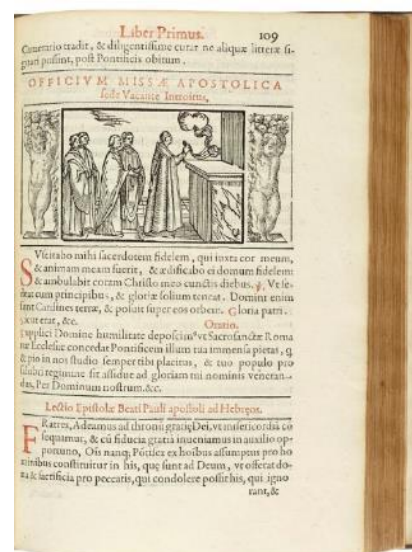 Liber Primus. 109
Camerario tradit, & diligentissime curat ne aliquæ litteræ si-
gnari possint, post Pontificis obitum.
OFFICIVM MISSÆ APOSTOLICA
sede Vacante Introitus,
SVscitabo mihi sacerdotem fidelem, qui iuxta cor meum,
& animam meam fuerit, & ædificabo ei domum fidelem:
& ambulabit coram Christo meo cunctis diebus. Vt se-
deat cum principibus, & gloriæ solium teneat. Domini enim
sunt Cardines terræ, & posuit super eos orbem. Gloria patri.
sicut erat, &c. Oratio.
Supplici Domine humilitate deposcim⁹ vt Sacrosanctæ Roma
næ Ecclesiæ concedat Pontificem illum tua immensa pietas, q
& pio in nos studio semper tibi placitus, & tuo populo pro
salubri regimine sit assidue ad gloriam tui nominis veneran-
das, Per Dominum nostrum.&c.
Lectio Epistolæ Beati Pauli apostoli ad Hebreos.
FRatres, Adeamus ad thronū gratię Dei, vt misericordiā cō
sequamur, & cū fiducia gratiā inueniamus in auxilio op-
portuno, Oīs nanq; Pōtifex ex hoībus assumptus pro ho
minibus constituitur in his, quę sunt ad Deum, vt offerat do-
na & sacrificia pro peccatis, qui condolere possit his, qui igno
rant, &